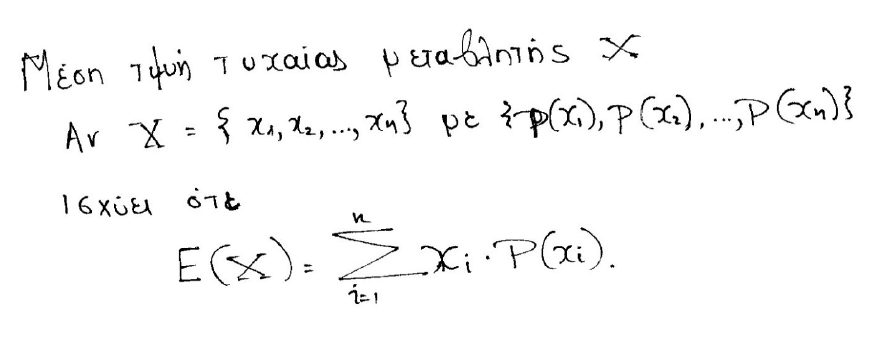 Μέση τιμή τυχαίας μεταβλητής X
Αν X = { x₁, x₂, ..., xₙ} με {p(x₁), P(x₂), ..., P(xₙ)}
ισχύει ότι
E(X) = ∑ᵢ₌₁ⁿ xᵢ · P(xᵢ).